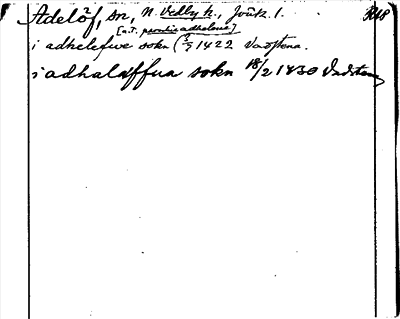 Adelöf, sn, N. Vedbo h., Jönk. l. RA8
[a.T. parochia adhelone]
i adhelefwe sokn (3/9 1422 Vadstena.
i adhalæffua sokn 18/2 1430 Vadstena